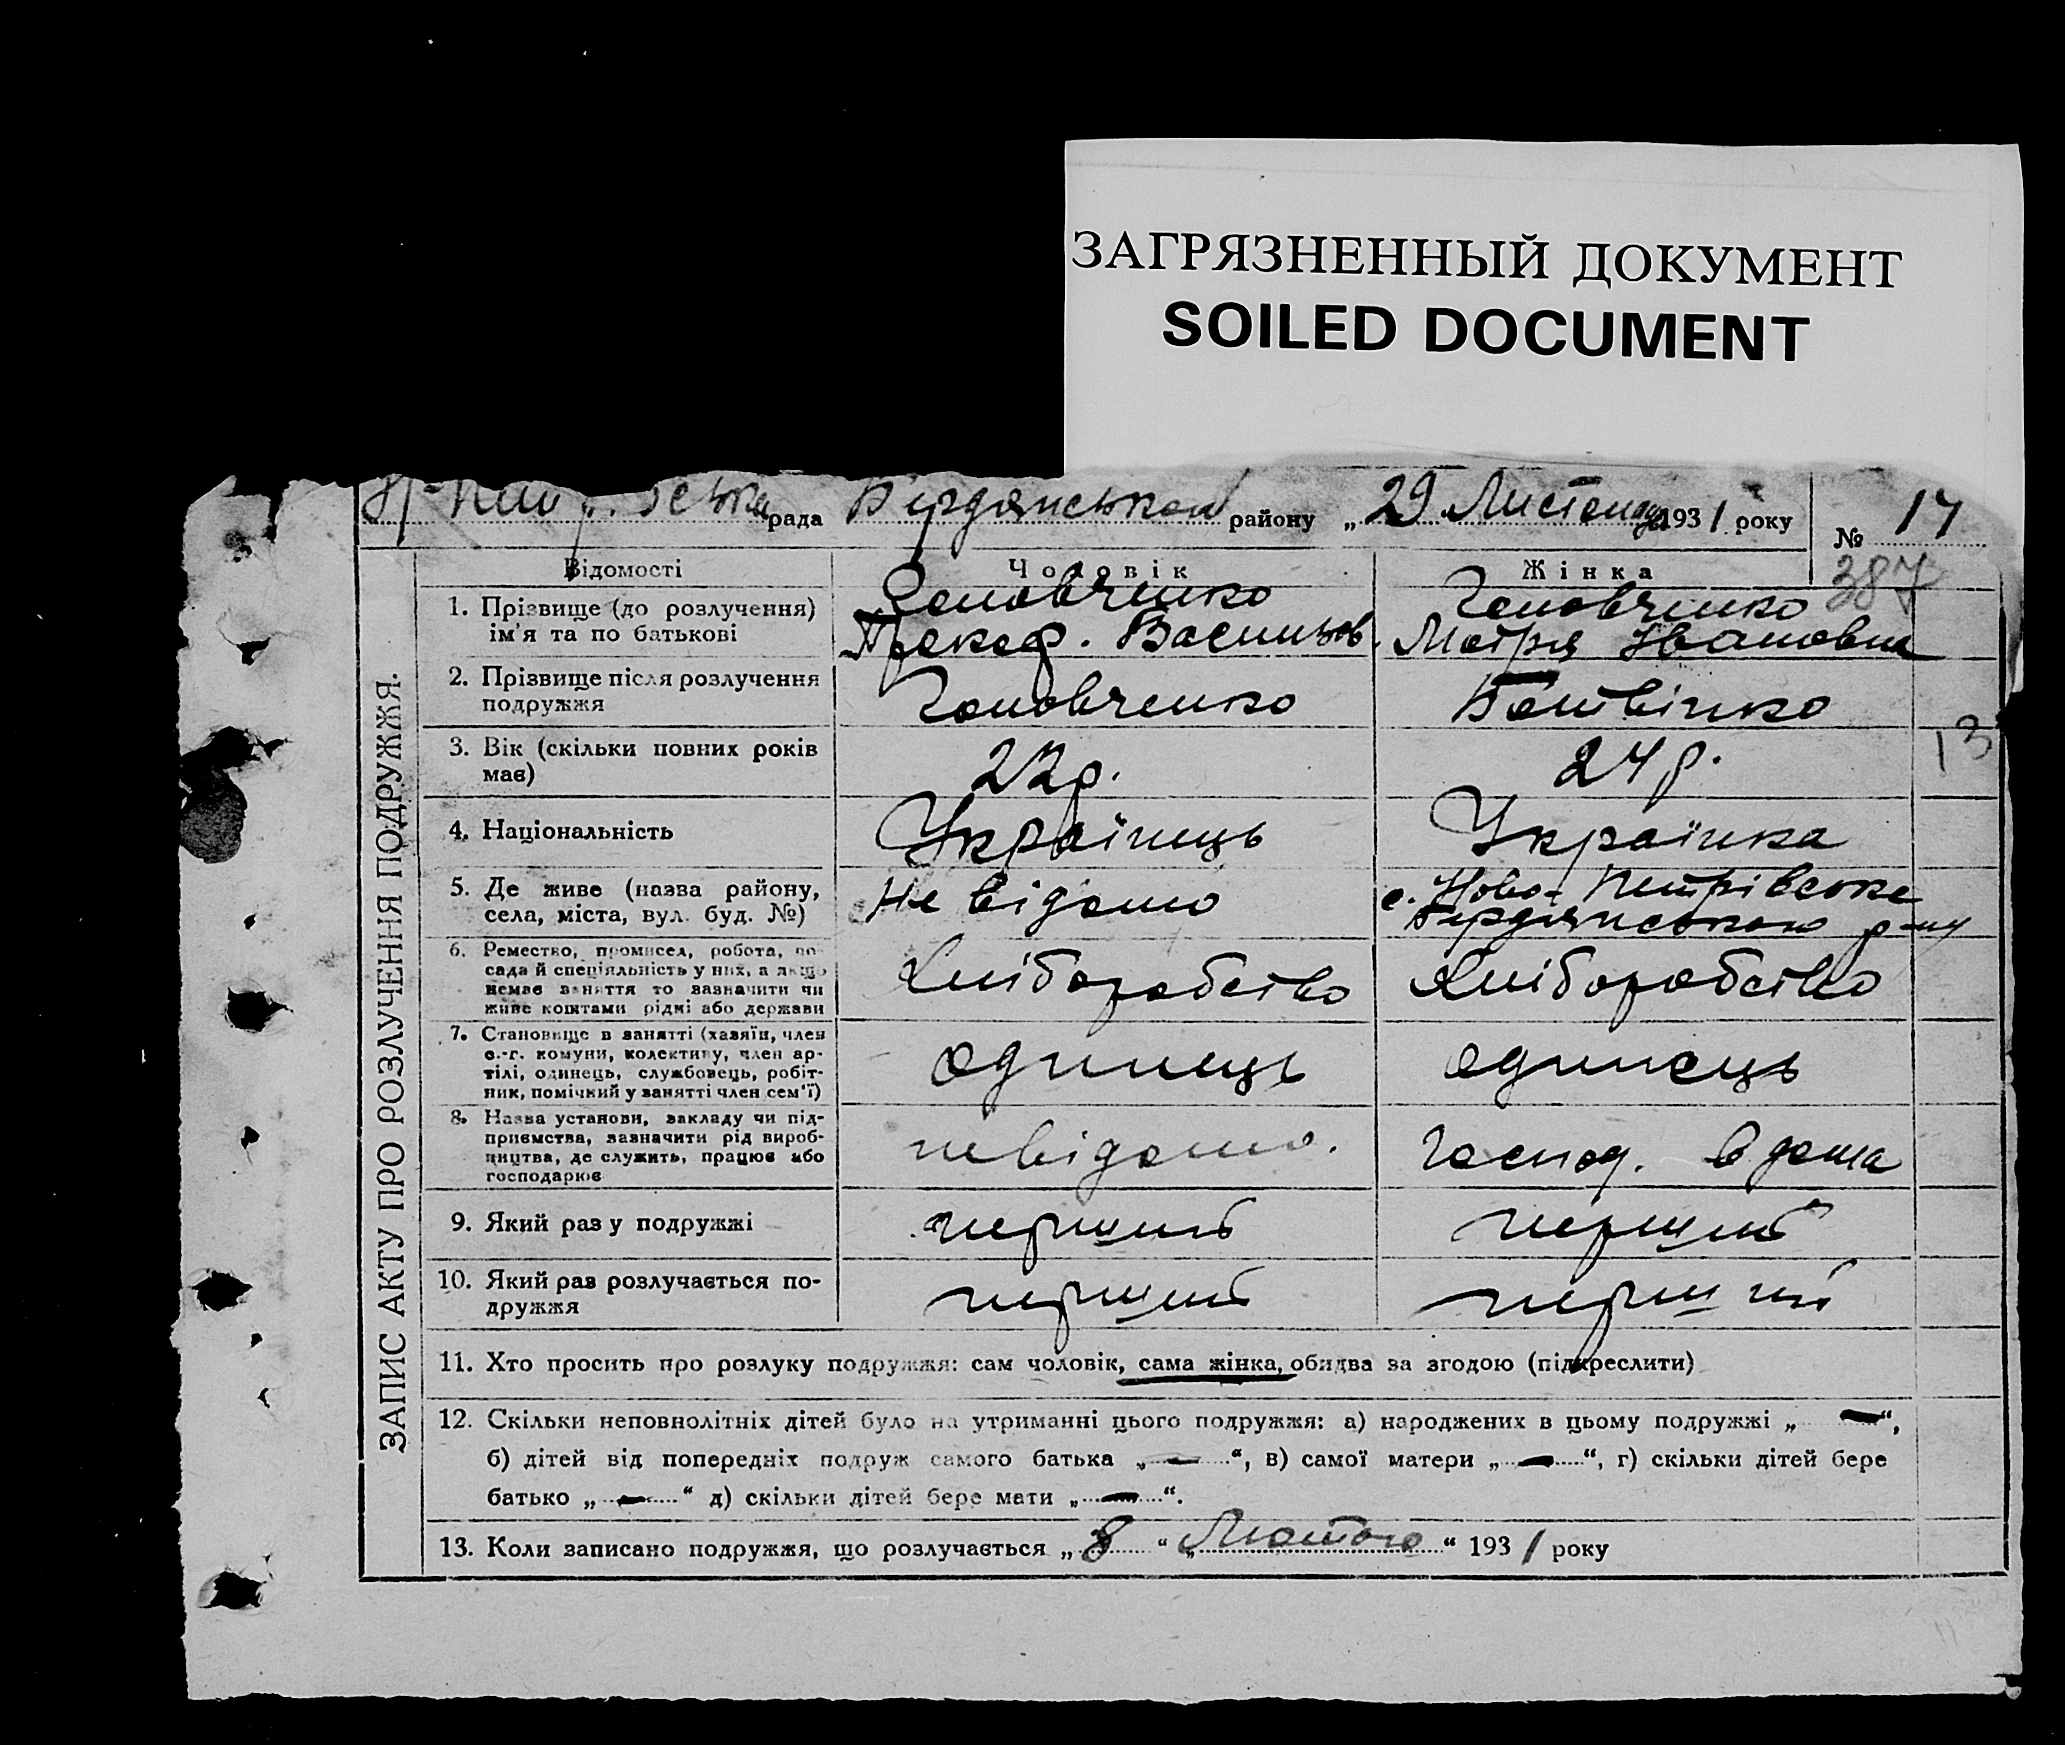 ЗАГРЯЗНЕННЫЙ ДОКУМЕНТ
SOILED DOCUMENT
рада Бердянської району „29 Листопада 1931 року
№ 17
387
ЗАПИС АКТУ ПРО РОЗЛУЧЕННЯ ПОДРУЖЖЯ.
Відомості Чоловік Жінка
1. Прізвище (до розлучення) Головченко Головченко
ім'я та по батькові Прокоф. Васильов. Мотря Івановна
2. Прізвище після розлучення
подружжя Головченко Ботвінко
3. Вік (скільки повних років
має) 22 р. 24 р.
13
4. Національність Українець Українка
5. Де живе (назва району, Не відомо с. Ново-Петрівське
села, міста, вул. буд. №) Бердянського р-ну
6. Ремество, промисел, робота, по-
сада й спеціяльність у них, а якщо
немає заняття то зазначити чи
живе коштами рідні або держави
Хліборобство Хліборобство
7. Становище в занятті (хазяїн, член
с.-г. комуни, колективу, член ар-
тілі, одинець, службовець, робіт-
ник, помічний у занятті член сем'ї)
одинець одинець
8. Назва установи, закладу чи під-
приємства, зазначити рід вироб-
ництва, де служить, працює або
господарює
невідомо. господ. вдома
9. Який раз у подружжі перший перший
10. Який раз розлучається по-
дружжя перший перший
11. Хто просить про розлуку подружжя: сам чоловік, сама жінка, обидва за згодою (підкреслити)
12. Скільки неповнолітніх дітей було на утриманні цього подружжя: а) народжених в цьому подружжі „—“,
б) дітей від попередніх подруж самого батька „—“, в) самої матери „—“, г) скільки дітей бере
батько „—“ д) скільки дітей бере мати „—“.
13. Коли записано подружжя, що розлучається „8“ „Лютого“ 1931 року